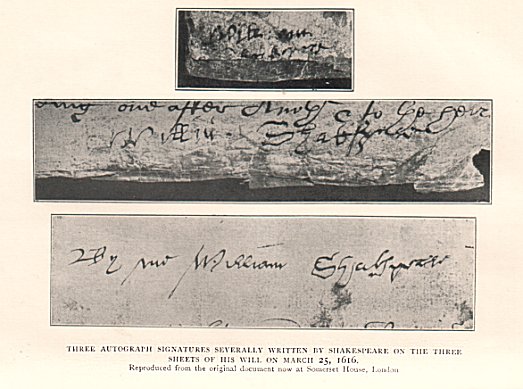 one after
Willm Shakspere
By me William Shakspeare
THREE AUTOGRAPH SIGNATURES SEVERALLY WRITTEN BY SHAKESPEARE ON THE THREE
SHEETS OF HIS WILL ON MARCH 25, 1616.
Reproduced from the original document now at Somerset House, London